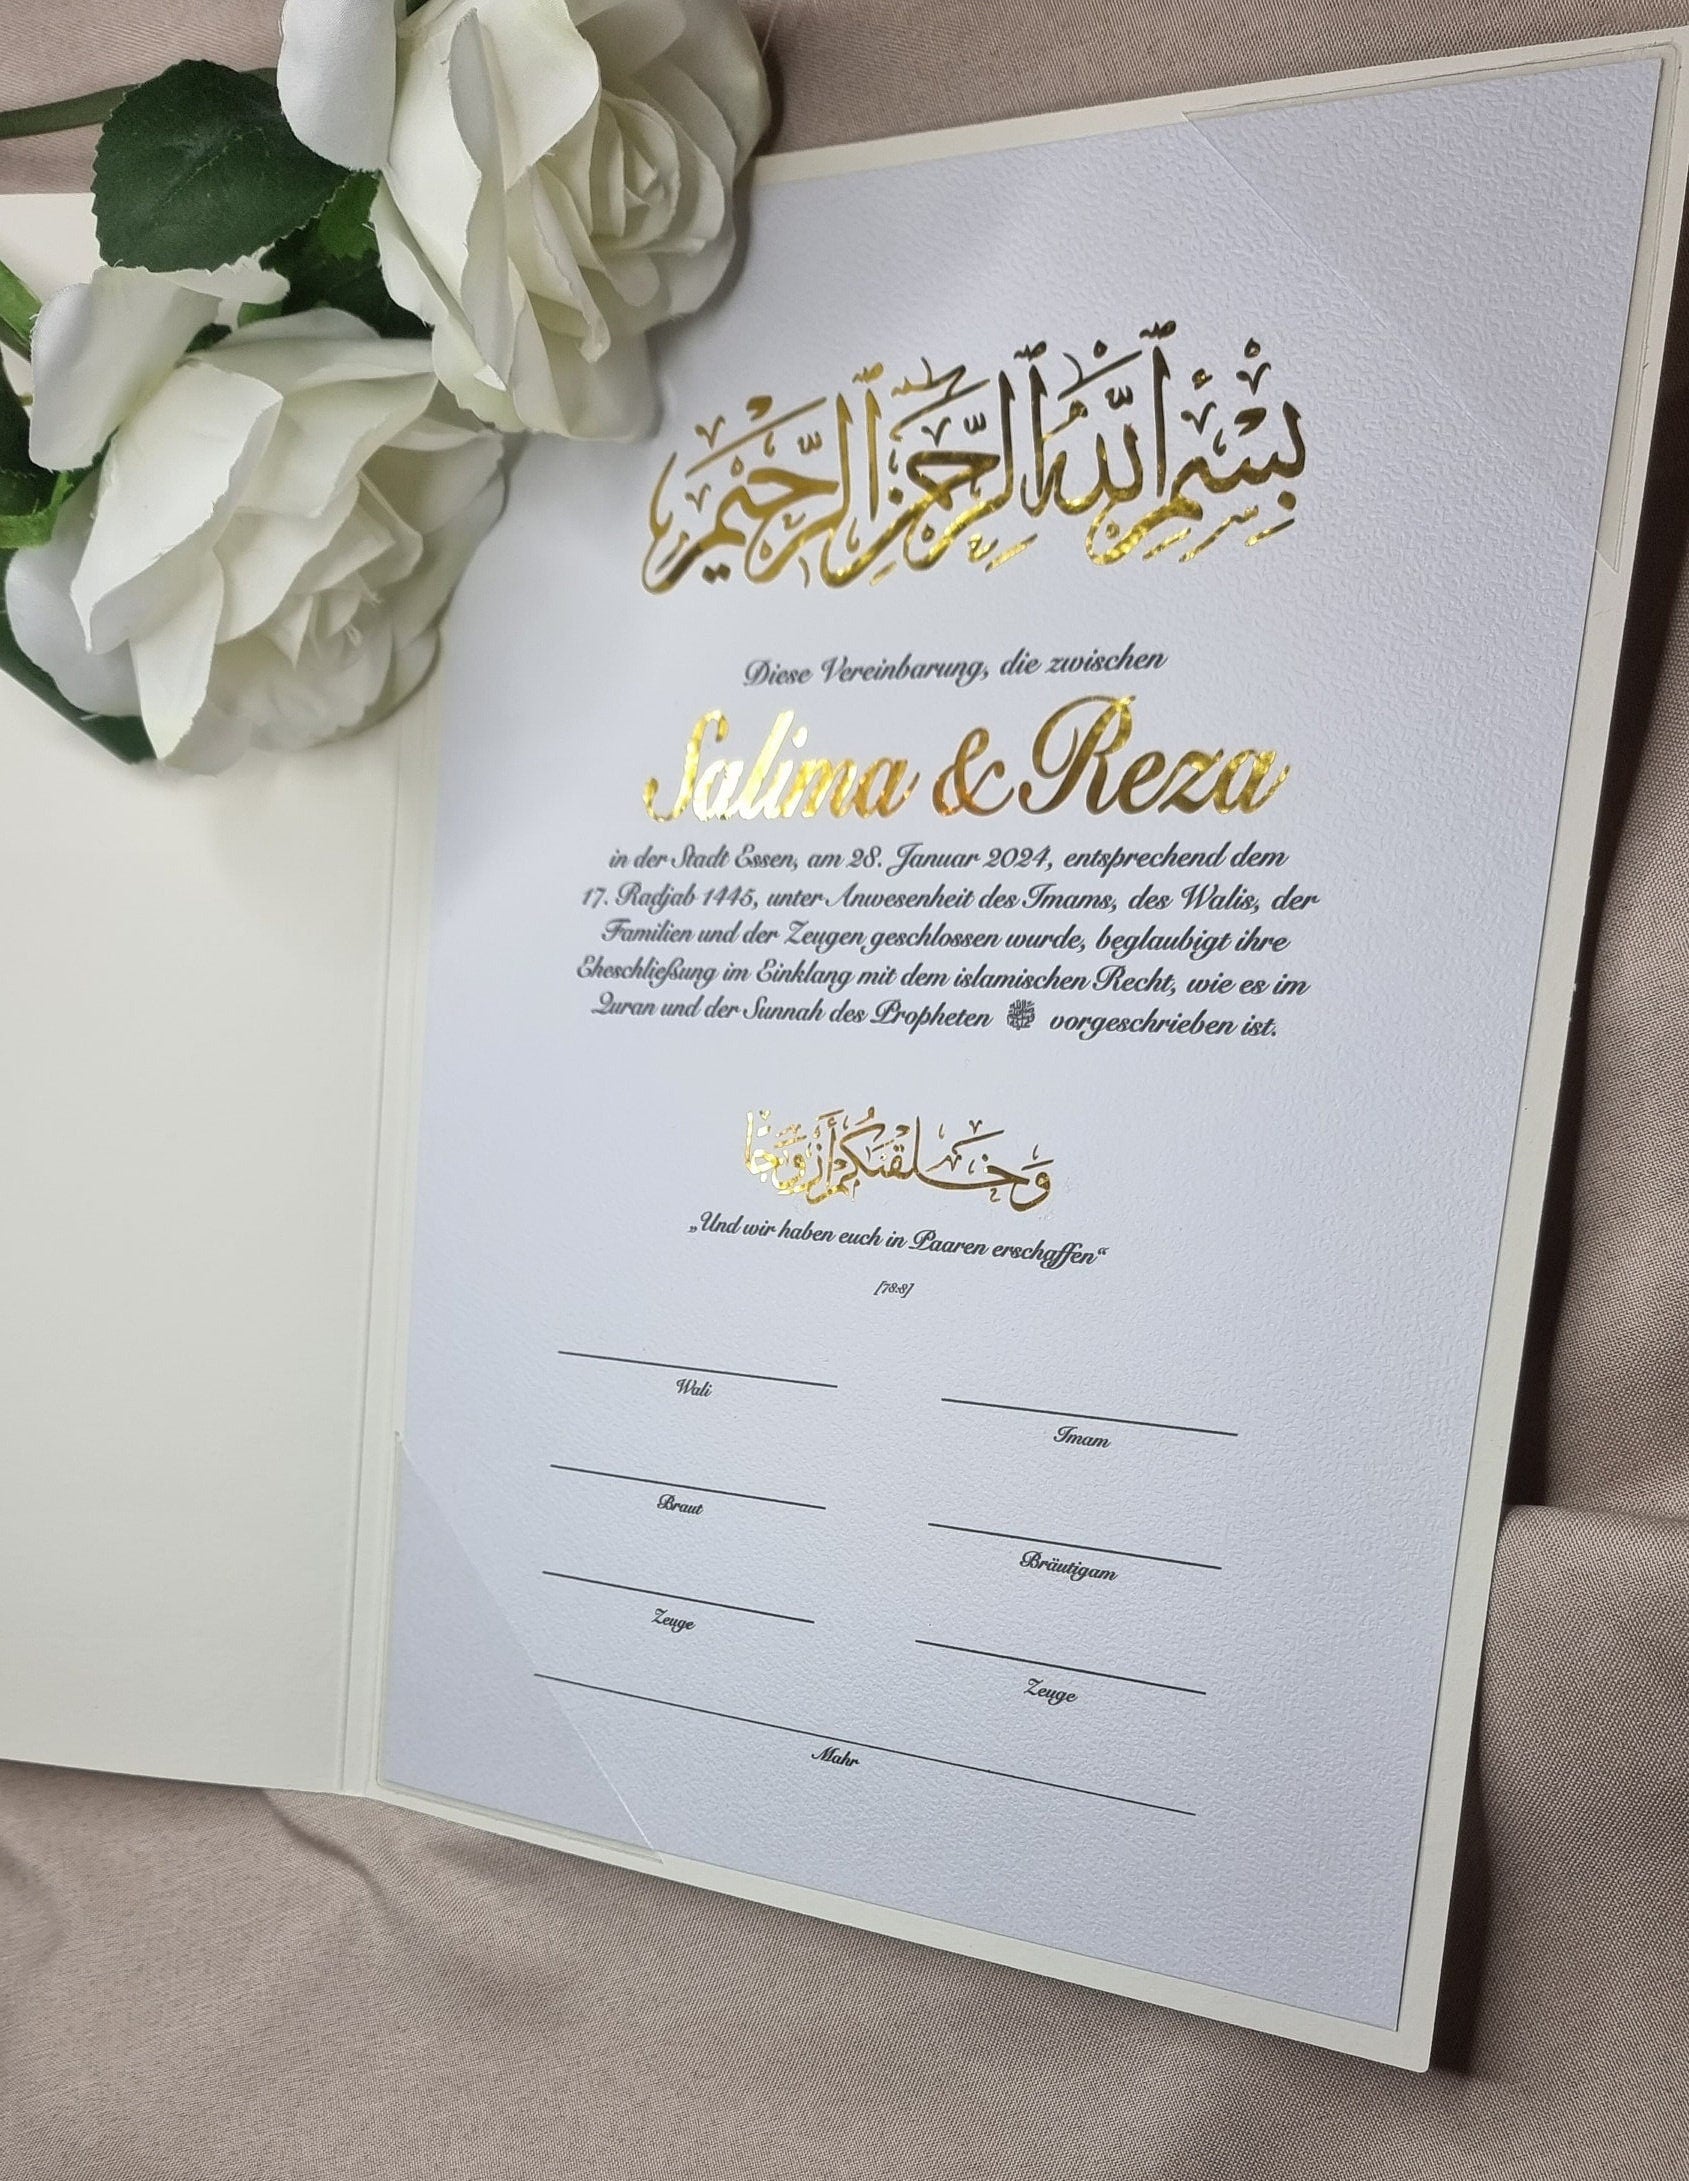 بِسْمِ ٱللَّهِ ٱلرَّحْمَٰنِ ٱلرَّحِيمِ
Diese Vereinbarung, die zwischen
Salima & Reza
in der Stadt Essen, am 28. Januar 2024, entsprechend dem
17. Radjab 1445, unter Anwesenheit des Imams, des Walis, der
Familien und der Zeugen geschlossen wurde, beglaubigt ihre
Eheschließung im Einklang mit dem islamischen Recht, wie es im
Quran und der Sunnah des Propheten ﷺ vorgeschrieben ist.
وَخَلَقْنَٰكُمْ أَزْوَٰجًا
„Und wir haben euch in Paaren erschaffen“
[78:8]
Wali
Imam
Braut
Bräutigam
Zeuge
Zeuge
Mahr